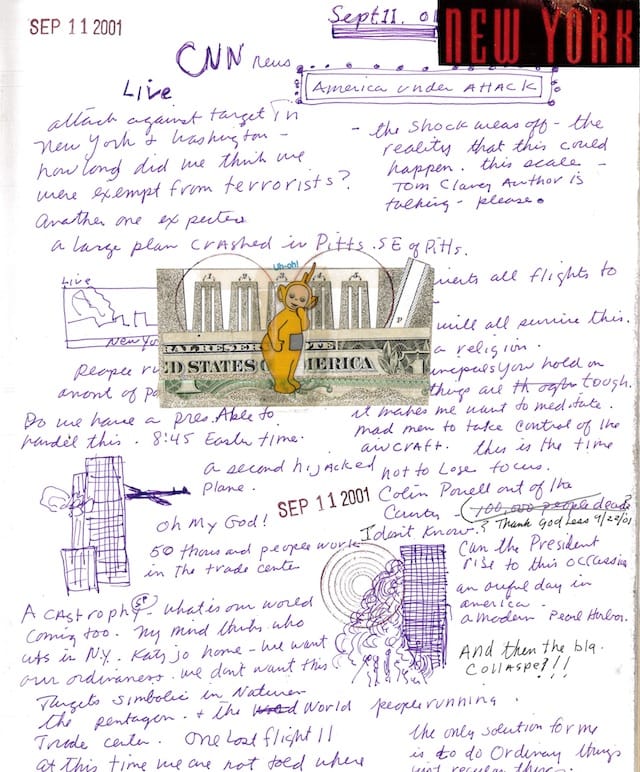 SEP 11 2001
Sept 11. 01
NEW YORK
CNN news
Live
America under Attack
attack against target in
New York & Washington -
how long did we think we
were exempt from terrorists?
Another one expected
a large plan crashed in Pitts. SE of Pitts.
- the shock wears off - the
reality that this could
happen. this scale -
Tom Clancy Author is
talking - please.
Live
New Yo
Uh-oh!
RAL RESER TE
D STATES O MERICA
1
verts all flights to
will all survive this.
a religion.
you hold on
things are tough.
it makes me want to meditate.
mad men to take control of the
aircraft. this is the time
not to Lose focus.
Colin Powell out of the
Country - 100,000 people dead?
I don't know. ? Thank God Less 9/22/01
people r
amont of p
Do we have a pres. Able to
handel this. 8:45 Easter time.
a second hijacked
plane.
SEP 11 2001
oh My God!
50 thousand people work
in the trade center
Can the President
rise to this occassion
an awful day in
america.
a modern Pearl Harbor.
And then the blg.
Collaspe!!!
A castrophy sp - what is our world
coming too. my mind thinks who
is in N.Y. Katy jo home - we want
our ordinaress. we dont want this
Targets simbolic in Nature
the pentagon. & the World
Trade center. One Lost flight 11
at this time we are not told where
people running
the only solution for me
is to do Ordinary things
just regular